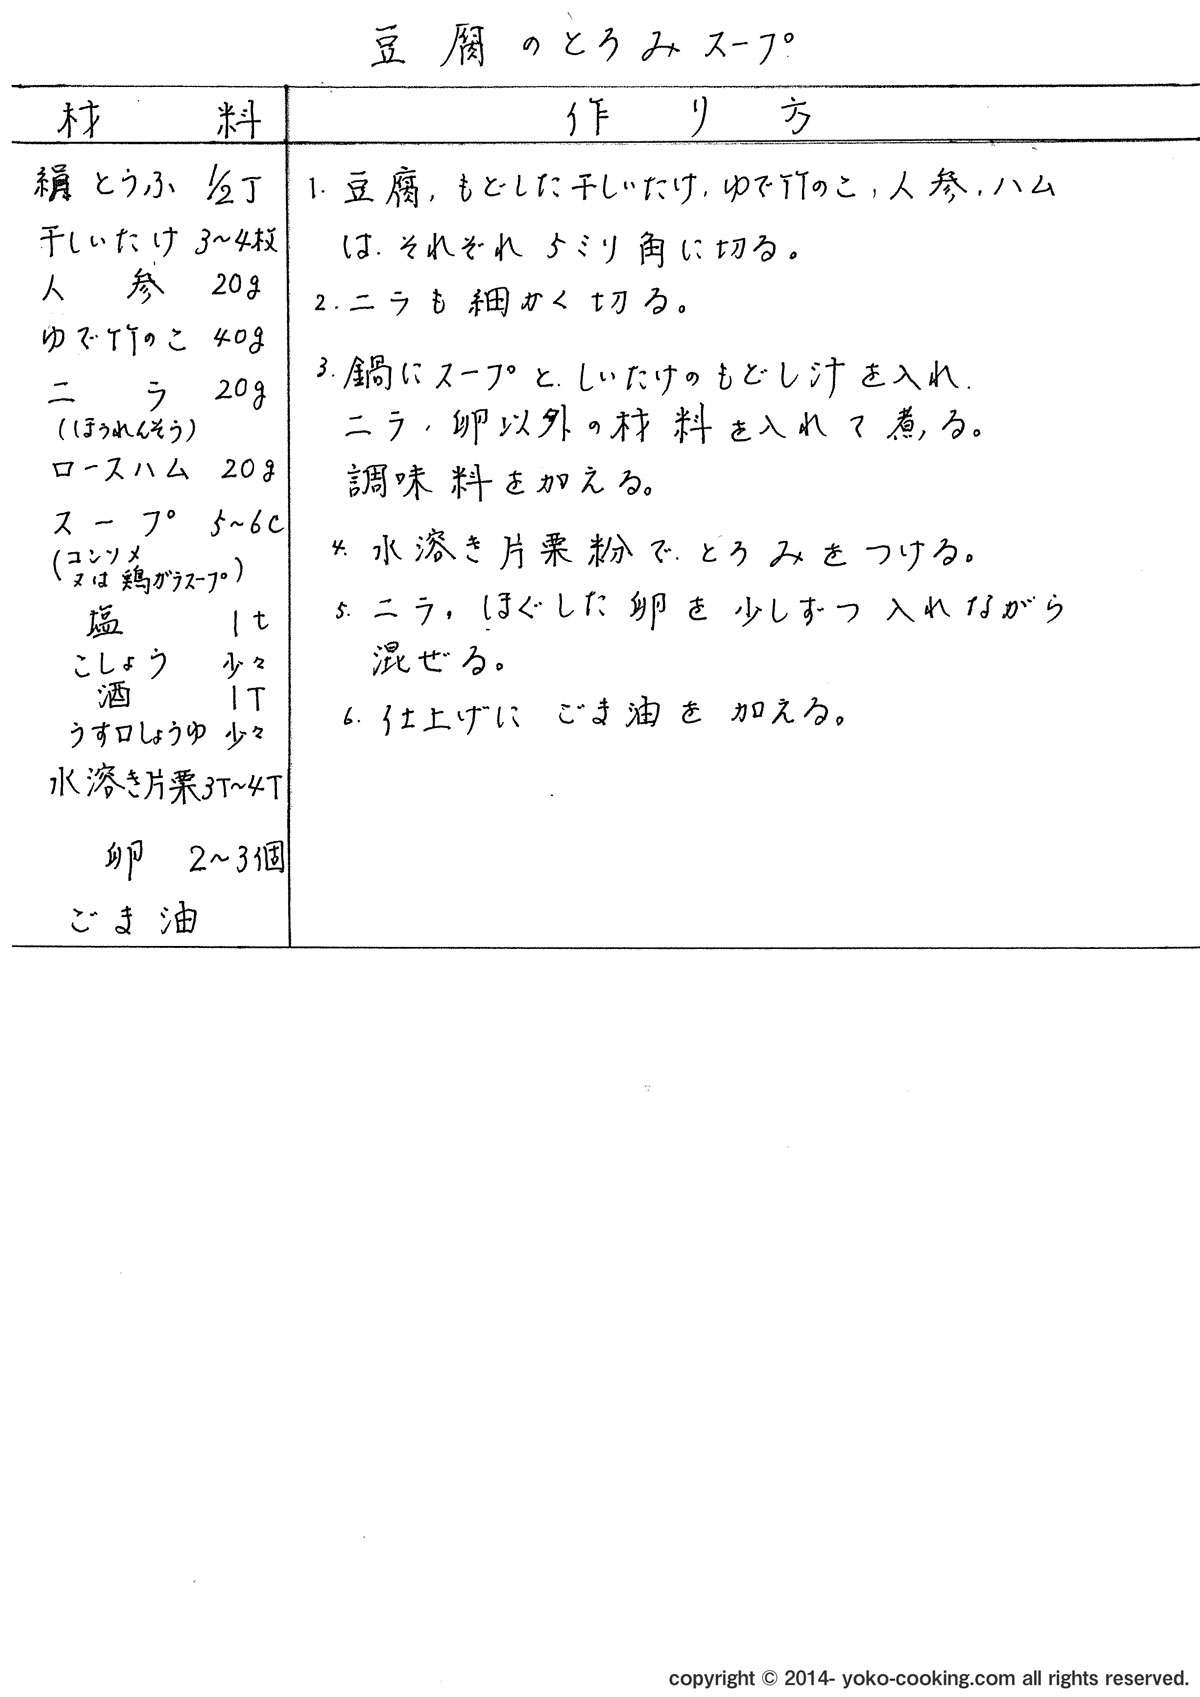 豆腐のとろみスープ
材料
作り方
絹とうふ 1/2丁
干しいたけ 3〜4枚
人参 20g
ゆで竹のこ 40g
ニラ 20g
(ほうれんそう)
ロースハム 20g
スープ 5〜6C
(コンソメ
又は鶏ガラスープ)
塩 1t
こしょう 少々
酒 1T
うす口しょうゆ 少々
水溶き片栗 3T〜4T
卵 2〜3個
ごま油
1. 豆腐, もどした干しいたけ, ゆで竹のこ, 人参, ハム
は, それぞれ 5ミリ角に切る。
2. ニラも細かく切る。
3. 鍋にスープと, しいたけのもどし汁を入れ,
ニラ, 卵以外の材料を入れて煮る。
調味料を加える。
4. 水溶き片栗粉で, とろみをつける。
5. ニラ, ほぐした卵を少しずつ入れながら
混ぜる。
6. 仕上げに ごま油を加える。
copyright © 2014- yoko-cooking.com all rights reserved.